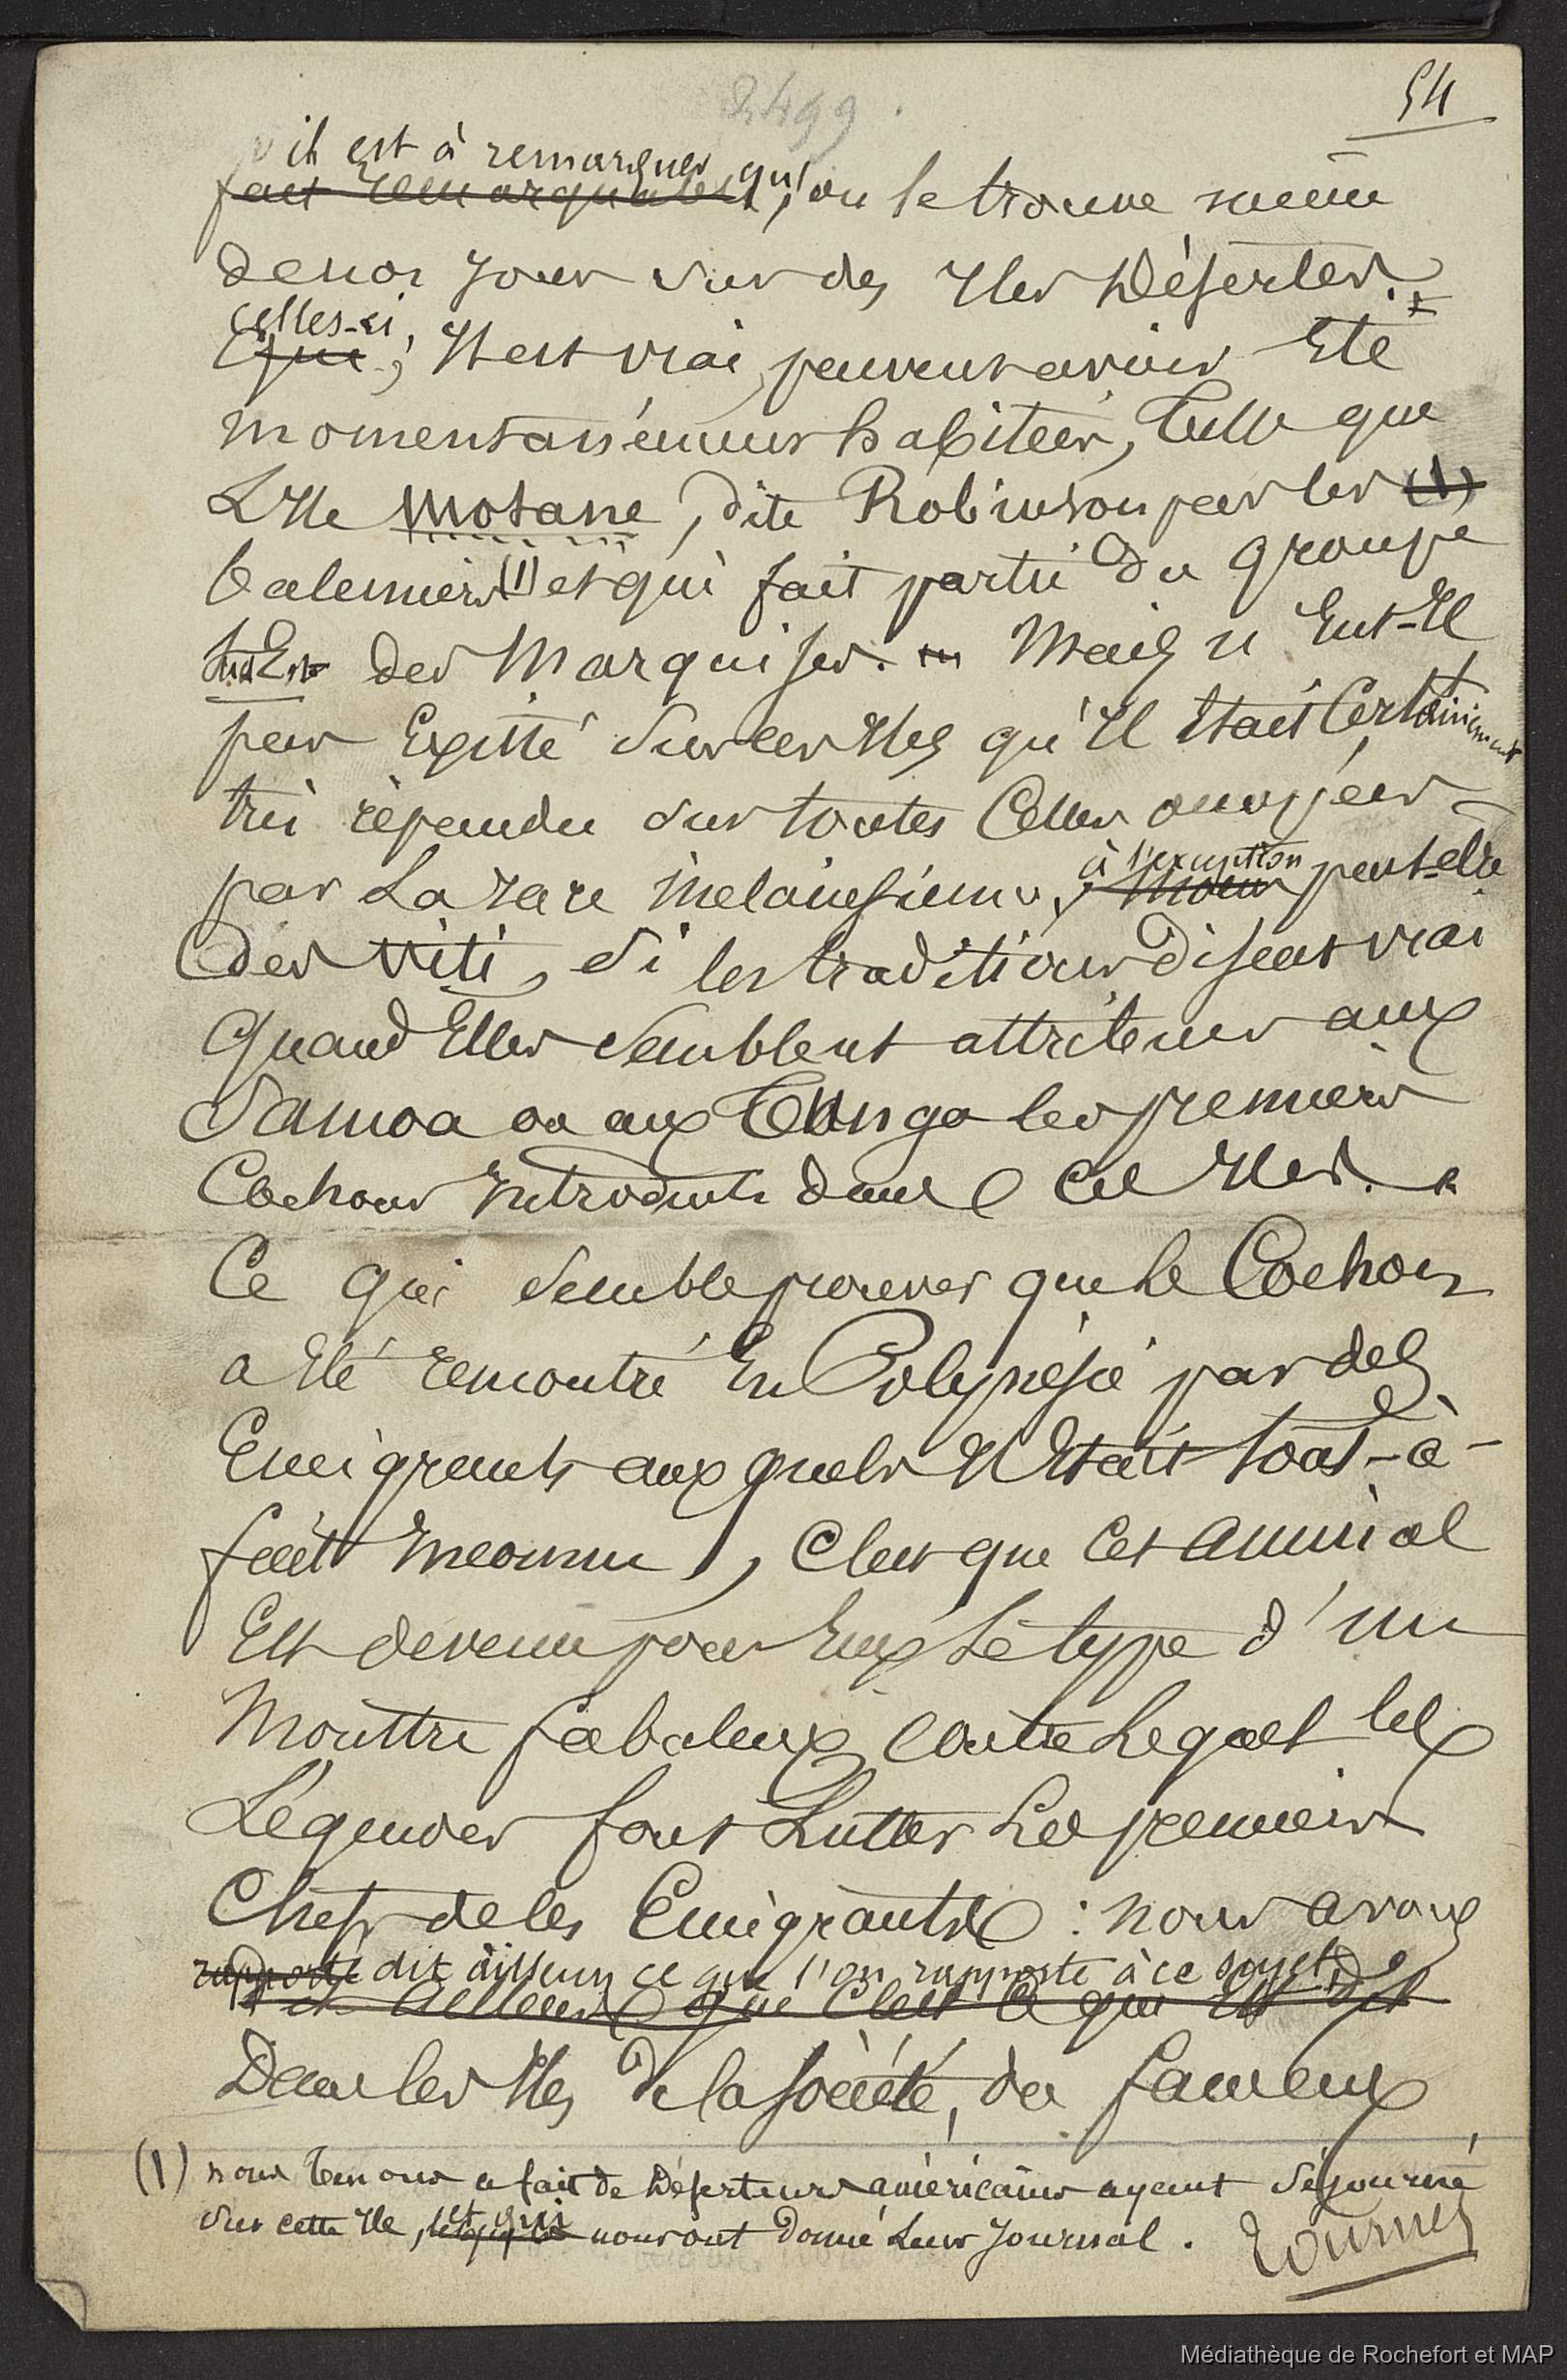 2499
54
il est à remarquer qu'
fait remarquable, on le trouve même
de nos jours sur des Iles Désertes.
celles-ci,
qui, Il est vrai, peuvent avoir Eté
momentanément habitées, telle que
L'Ile Motane, dite Robinson par les (1)
baleiniers (1) et qui fait partie du groupe
Sud Est des Marquises. Mais n'eut-Il
pas Existé sur ces Iles qu'Il Etait Certainement
très répandu sur toutes Celles occupées
à l'exception
par La race mélanésienne, peut-etre
des Viti, Si les traditions disent vrai
quand Elles semblent attribuer aux
Samoa ou aux Tunga les premiers
Cochons Introduits dans ces Iles.
Ce qui semble prouver que le Cochon
a Eté rencontré En Polynésie par des
Emigrants auxquels Il Etait tout-à-
fait Inconnu, c'est que cet animal
Est devenu pour Eux Le type d'un
Monstre fabuleux contre Lequel les
Légendes font Lutter Les premiers
Chefs de ces Emigrants : nous avons
rapporté dit ailleurs ce que l'on rapporte à ce sujet,
dit ailleurs que c'est ce qui Est dit
Dans les Iles de la société, du fameux
(1) nous tenons ce fait de Déserteurs américains ayant séjourné
sur cette Ile, et qui nous ont donné Leur Journal.
Tournez
Médiathèque de Rochefort et MAP